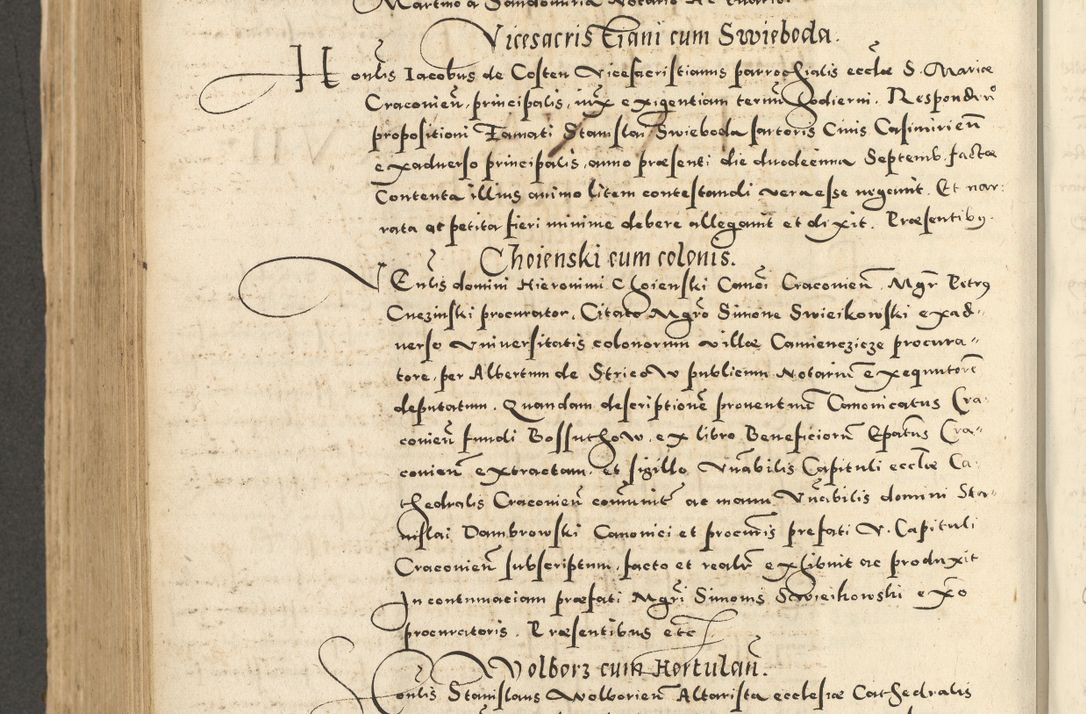 Martino a Sandomiria Notario
Vicesacristiani cum Swieboda.
Honlis Iacobus de Costen Vicesacristianus parrochialis ecclæ S. Mariæ
Cracovien̄, principalis, iux̄ exigentiam termi hodierni. Responden̄
propositioni Famati Stanislai Swieboda sartoris Civis Casimirien̄
ex adverso principalis, anno præsenti die duodecima Septemb. factæ
Contenta illius animo litem contestandi vera esse negavit. Et nar-
rata ac petita fieri minime debere allegavit et dixit. Præsentibus.
Choienski cum colonis.
Venlis domini Hieronimi Choienski Canoi Cracovien̄. Mgr̄ Petrus
Cnezinski procurator, Citato Mgro Simone Swieikowski ex ad-
verso Vniversitatis colonorum villæ Camienczicze procura-
tore, per Albertum de Strieow publicum Notarium exequutorē
deputatum. Quandam descriptionē proventuum Canonicatus Cra-
covien̄ fundi Bossuthow, ex libro Beneficiorū Epatus Cra-
covien̄ extractam, et sigillo Vn̄abilis Capituli ecclæ Ca-
thedralis Cracovien̄ communit̄ ac manu Vn̄abilis domini Sta-
nislai Dambrowski Canonici et procuris prefati V. Capituli
Cracovien̄ subscriptum, facto et realr̄ exhibuit ac produxit
In contumaciam præfati Mgri Simonis Swieikowski ex̄o
procuratoris. Præsentibus etc
Wolborz cum Hortulan̄.
Honlis Stanislaus Wolborien̄ Altarista ecclesiæ Cathedralis